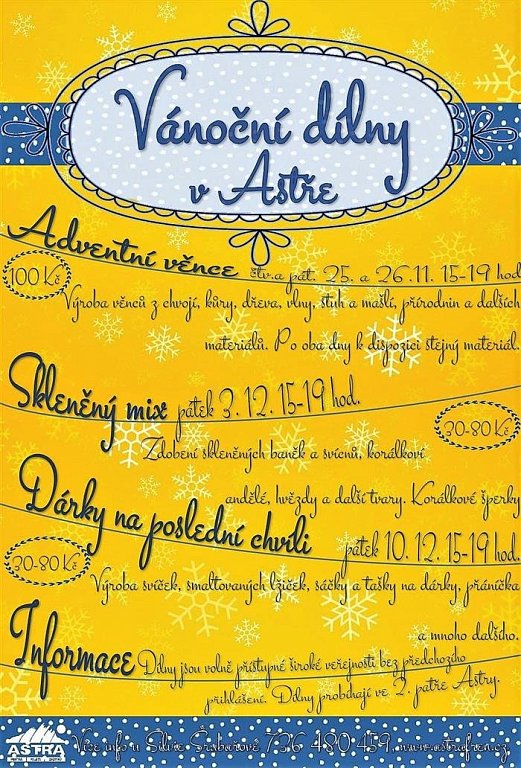 Vánoční dílny
v Astře
Adventní věnce čtv.a pát. 25. a 26.11. 15-19 hod
100 Kč
Výroba věnců z chvojí, kůry, dřeva, vlny, stuh a mašlí, přírodnin a dalších
materiálů. Po oba dny k dispozici stejný materiál.
Skleněný mix pátek 3. 12. 15-19 hod.
30-80 Kč
Zdobení skleněných baněk a svícnů, korálkoví
andělé, hvězdy a další tvary. Korálkové šperky
Dárky na poslední chvíli pátek 10. 12. 15-19 hod.
30-80 Kč
Výroba svíček, smaltovaných lžiček, sáčky a tašky na dárky, přáníčka
a mnoho dalšího.
Informace Dílny jsou volně přístupné široké veřejnosti bez předchozího
přihlášení. Dílny probíhají ve 2. patře Astry.
ASTRA
Více info u Silvie 736 480 459, www.astrafren.cz